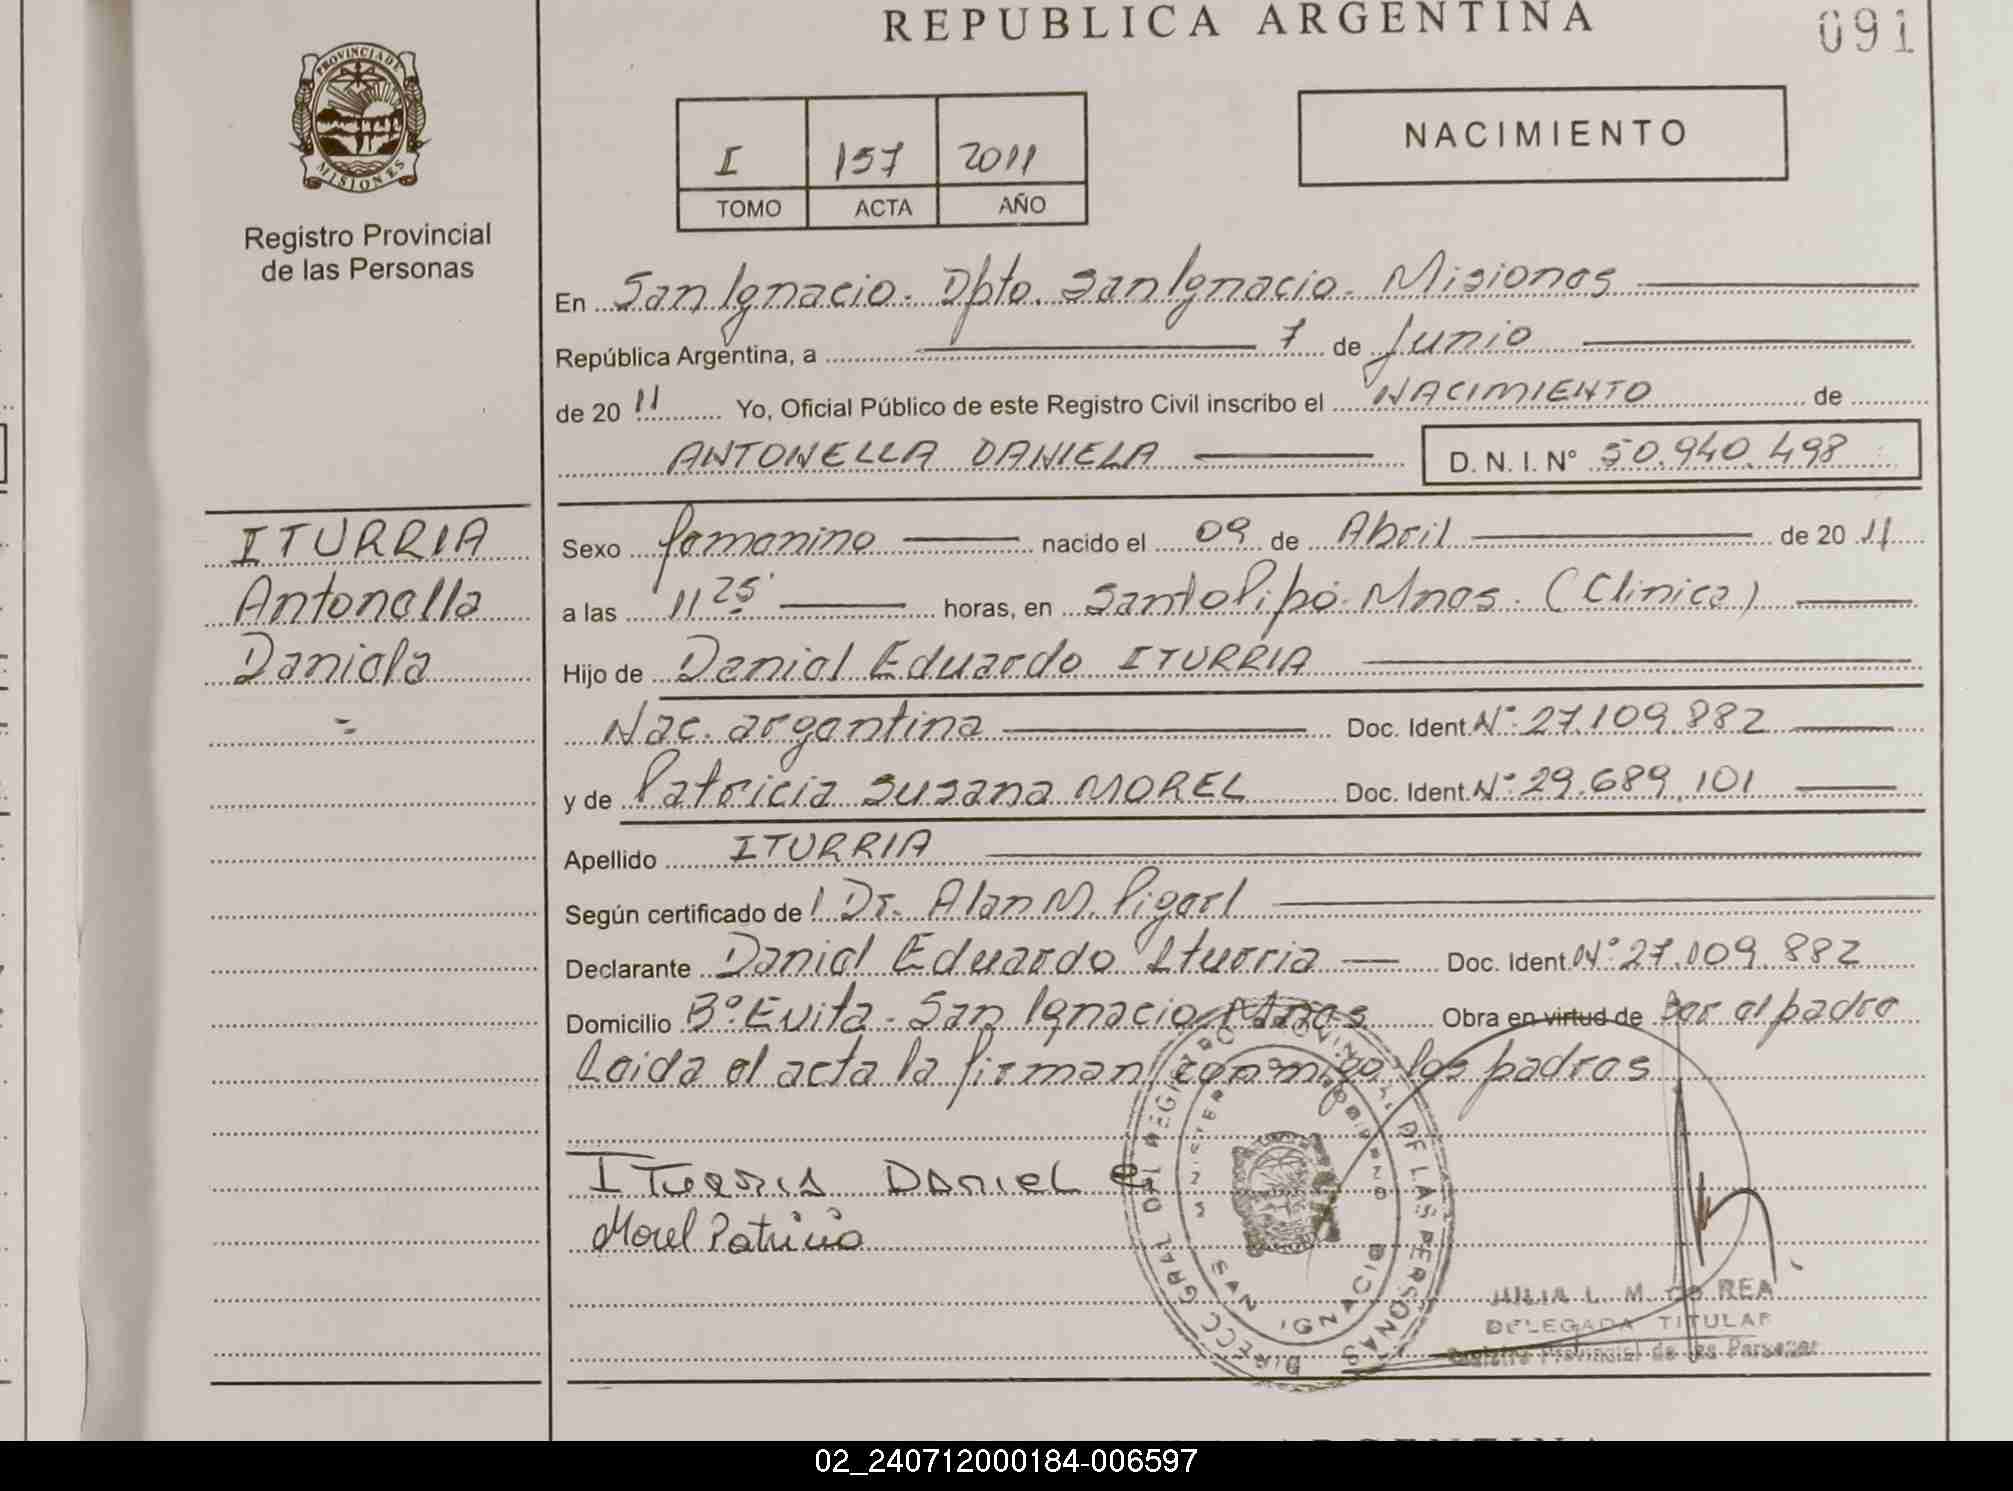 REPUBLICA ARGENTINA
091
PROVINCIA DE
MISIONES
Registro Provincial
de las Personas
I 157 2011
TOMO ACTA AÑO
NACIMIENTO
En San Ignacio. Dpto. San Ignacio. Misiones
República Argentina, a 7 de Junio
de 20 11 Yo, Oficial Público de este Registro Civil inscribo el NACIMIENTO de
ANTONELLA DANIELA D. N. I. N° 50.940.498
ITURRIA
Antonella
Daniela
=
Sexo femenino nacido el 09 de Abril de 20 11
a las 11 25' horas, en Santo Pipó. Mnes. (Clinica)
Hijo de Daniel Eduardo ITURRIA
Nac. argentina Doc. Ident. N° 27.109.882
y de Patricia Susana MOREL Doc. Ident. N° 29.689.101
Apellido ITURRIA
Según certificado de l Dr. Alan M.
Declarante Daniel Eduardo Iturria Doc. Ident. N° 27.109.882
Domicilio B° Evita - San Ignacio Mnes Obra en virtud de Ser el padre
Leida el acta la firman conmigo los padres
ITURRIA DANIEL E
Morel Patricia
DIRECC GRAL DEL REGISTRO PROVINCIAL DE LAS PERSONAS
SAN IGNACIO
JULIA L. M. CORREA
DELEGADA TITULAR
Registro Provincial de las Personas
02_240712000184-006597